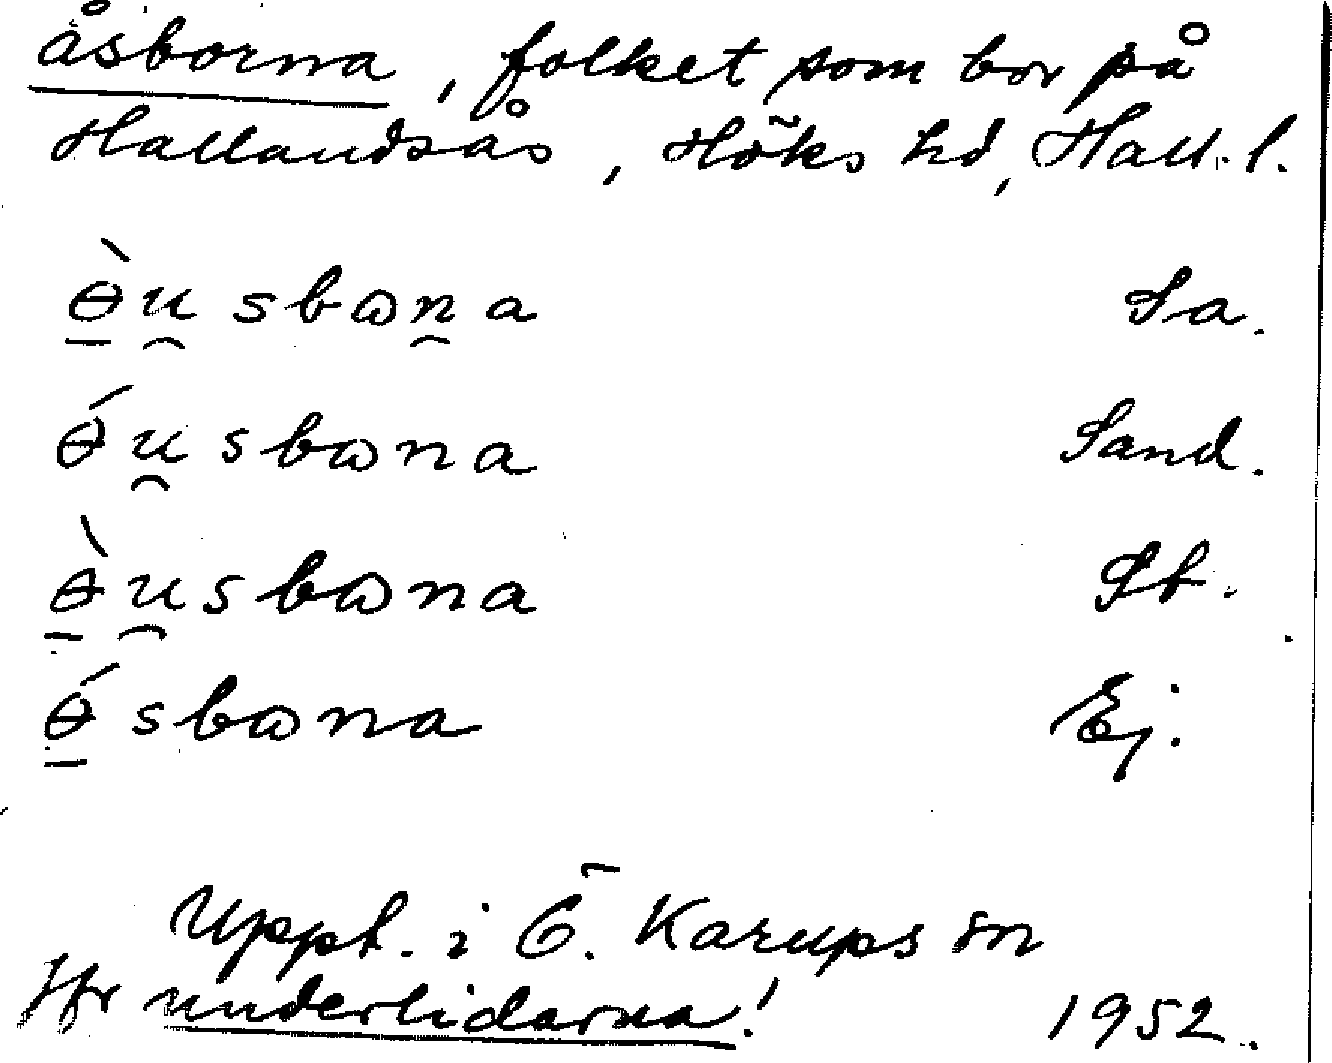 åsborna, folket som bor på
Hallandsås, Höks hd, Hall. l.
ɵ̱̀u̯sbɷn̯a Sa.
ɵ́u̯sbɷna Sand.
ɵ̱̀u̯sbɷna St.
ɵ̱́sbɷna Ej.
Uppt. i Ö. Karups sn
Jfr underlidarna! 1952.